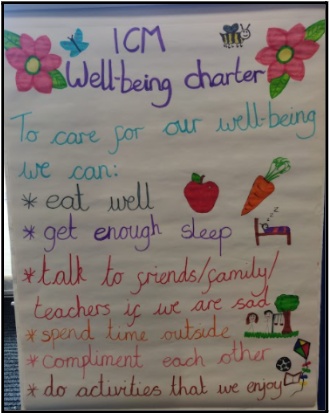 1CM
Well-being charter
To care for our well-being
we can:
* eat well
* get enough sleep
* talk to friends/family/
teachers if we are sad
* spend time outside
* compliment each other
* do activities that we enjoy